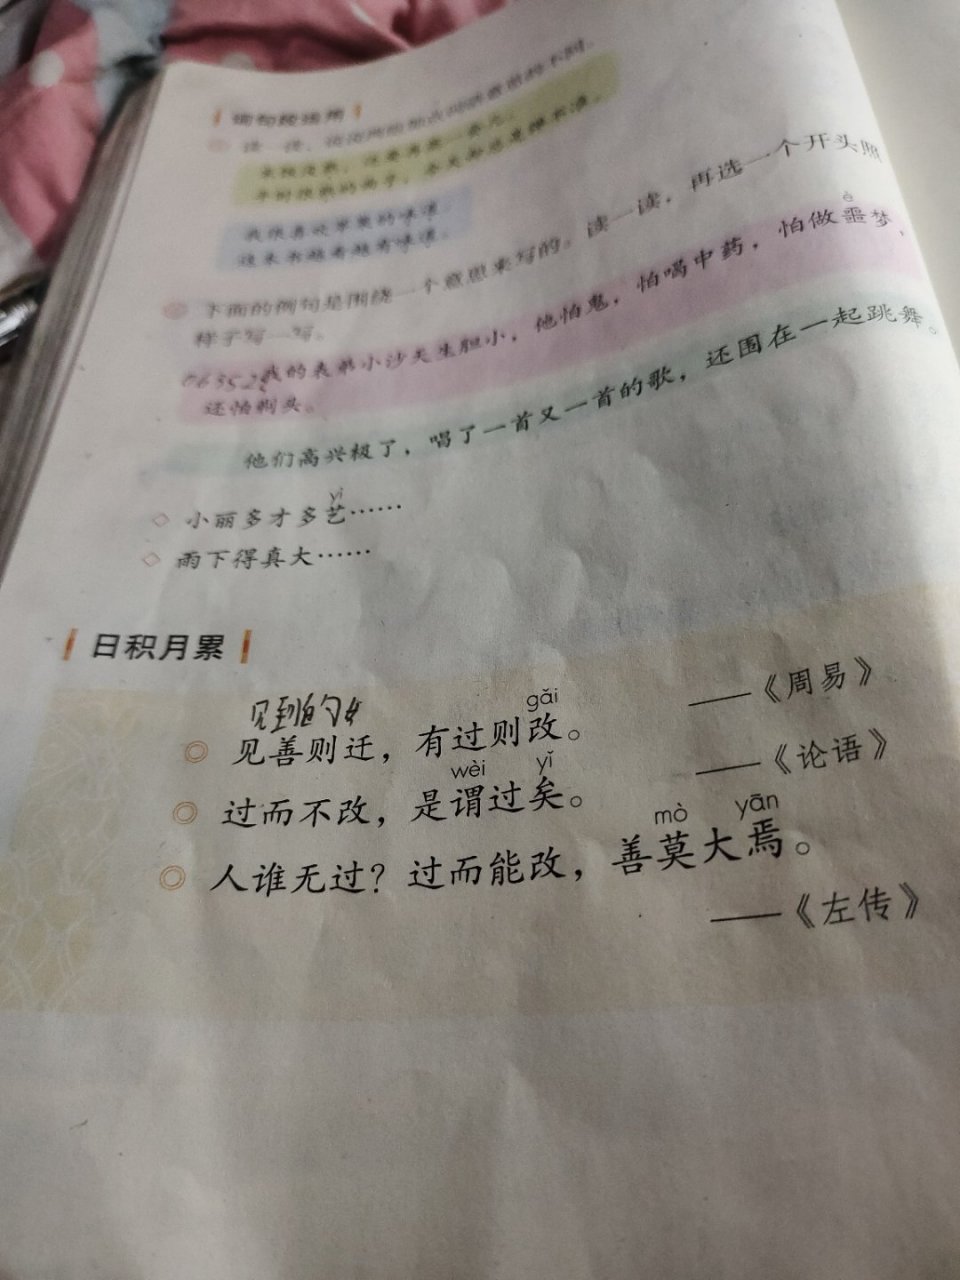 词句段运用
我很喜欢苹果的味道。
这本书越看越有味道。
下面的例句是围绕一个意思来写的。读一读，再选一个开头照
样子写一写。
è
我的表弟小沙天生胆小，他怕鬼，怕喝中药，怕做噩梦，
还怕剃头。
他们高兴极了，唱了一首又一首的歌，还围在一起跳舞。
yì
小丽多才多艺……
雨下得真大……
日积月累
见到
gǎi
见善则迁，有过则改。
——《周易》
wèi yǐ
过而不改，是谓过矣。
——《论语》
mò yān
人谁无过？过而能改，善莫大焉。
——《左传》